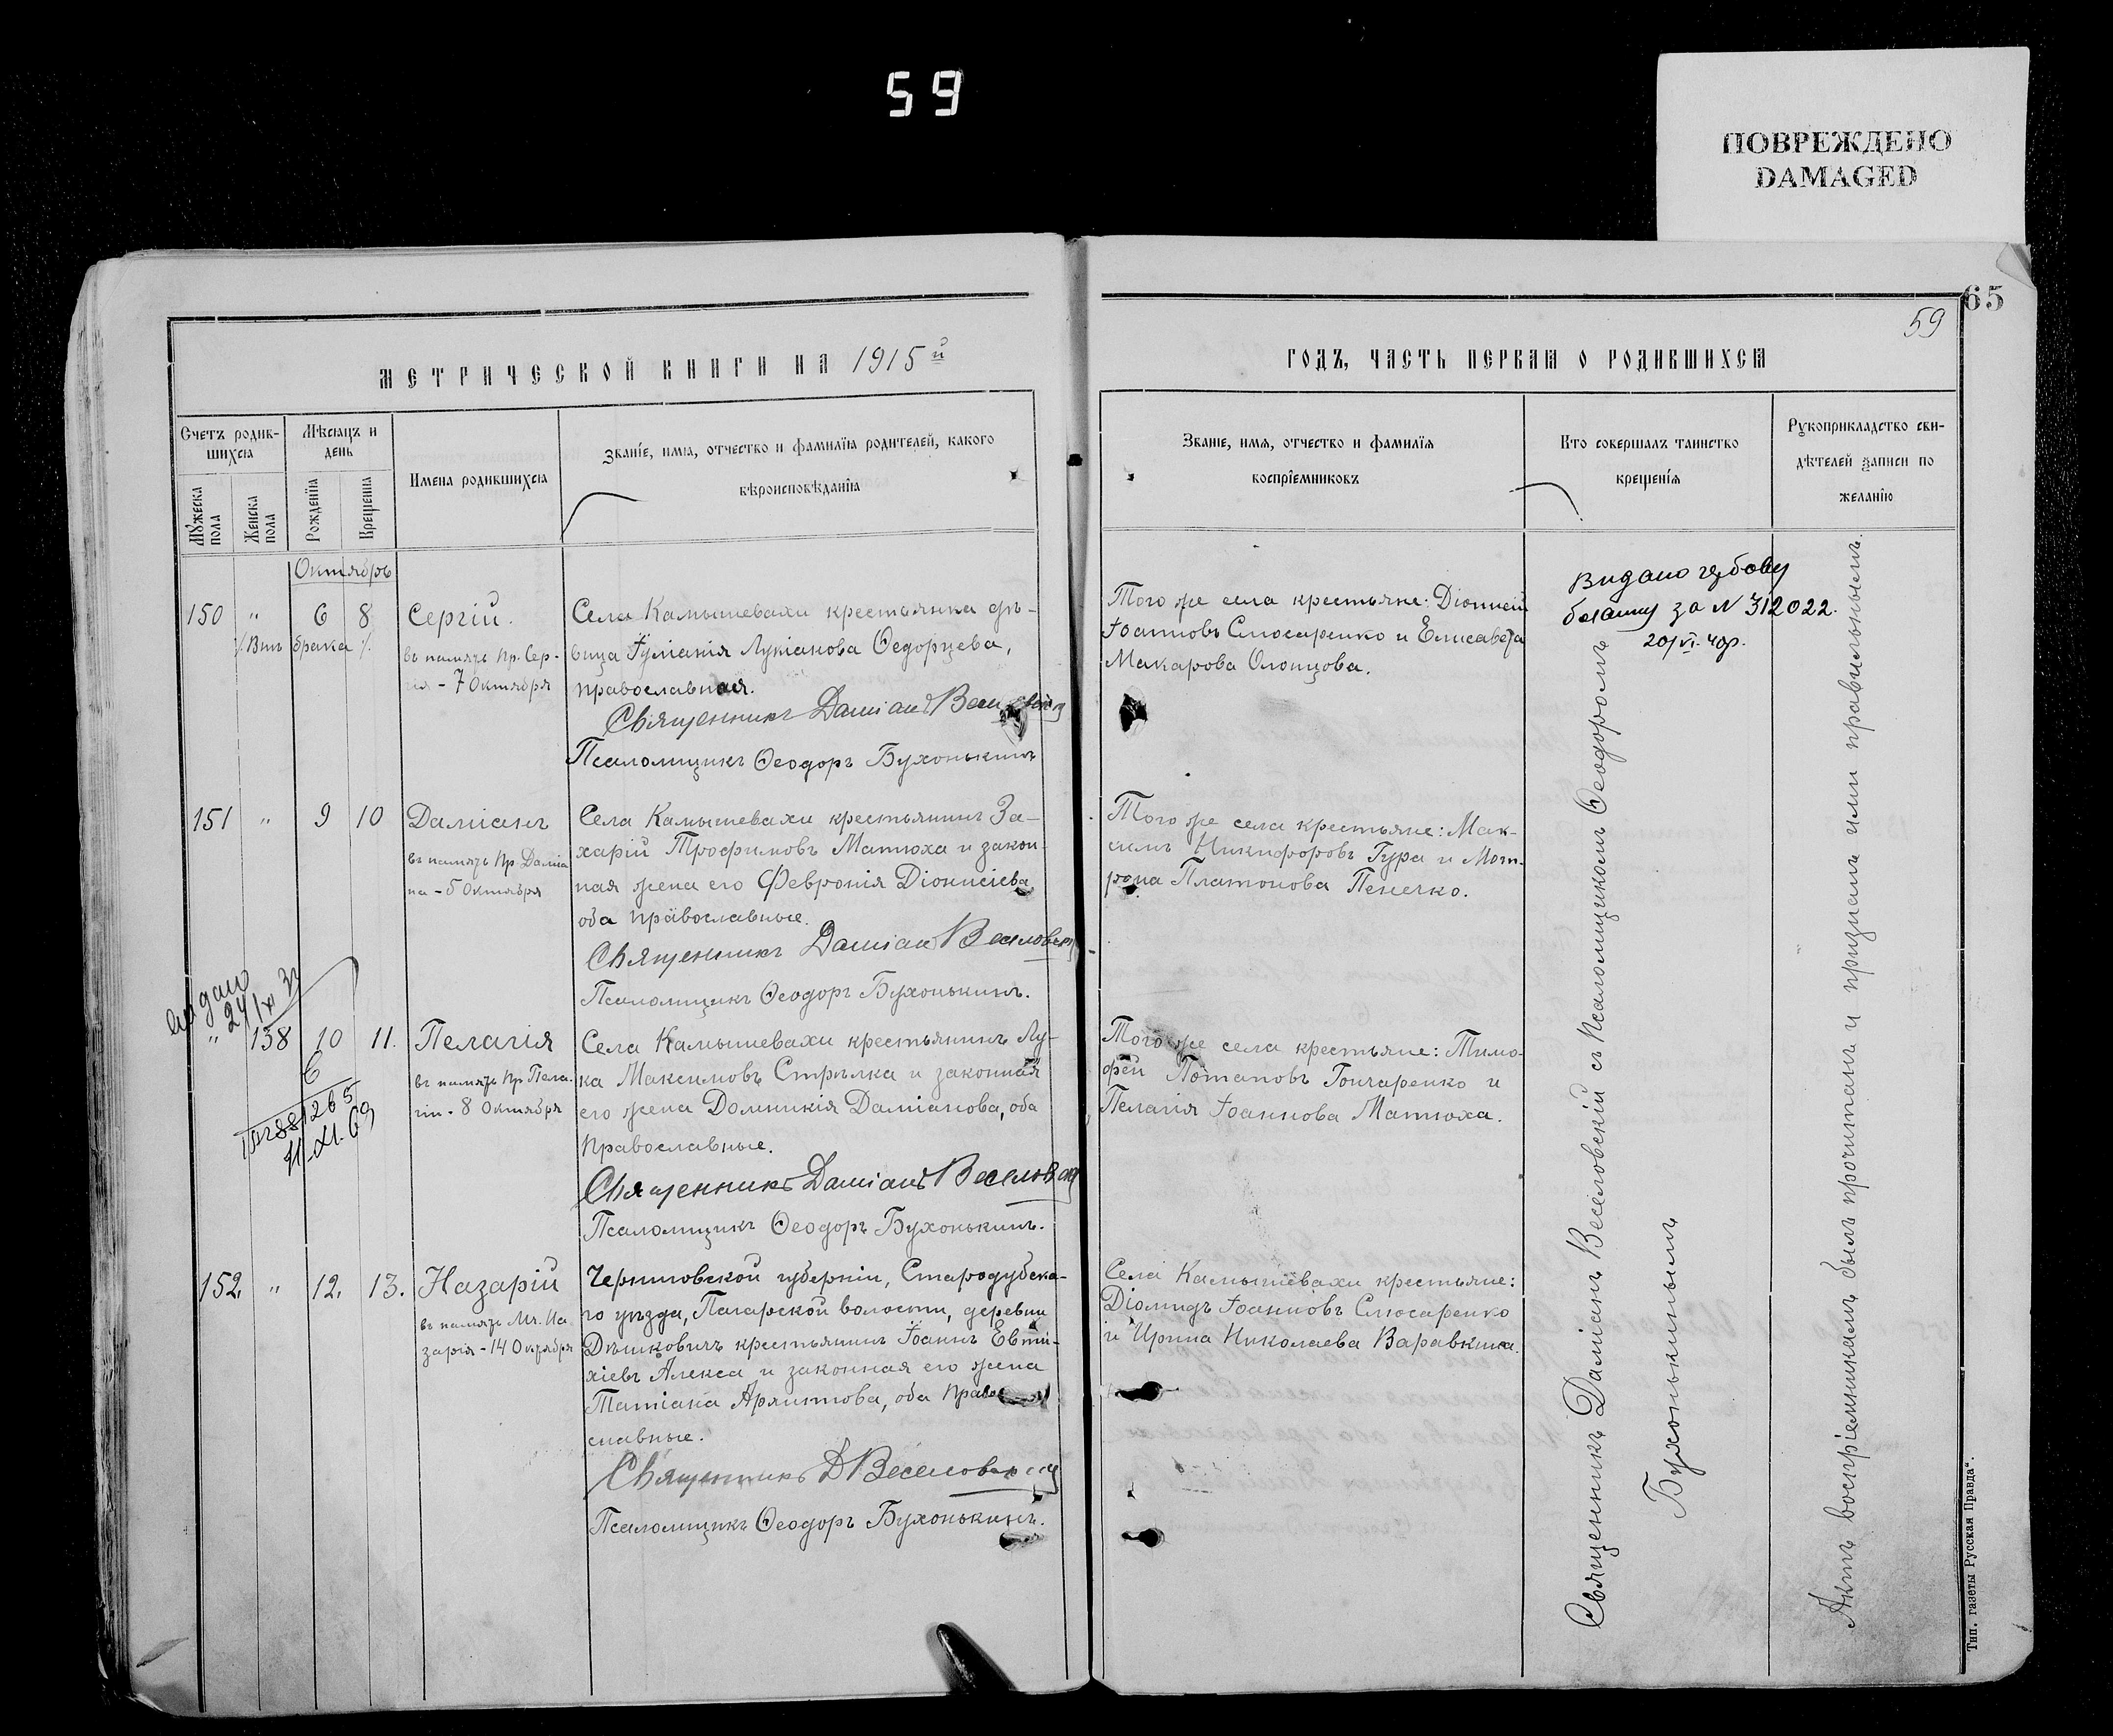 59
ПОВРЕЖДЕНО
DAMAGED
65
59
МЕТРИЧЕСКОЙ КНИГИ НА 1915й
ГОДЪ, ЧАСТЬ ПЕРВАЯ О РОДИВШИХСЯ
Счетъ родив-
шихся
Мужеска пола
Женска пола
Мѣсяцъ и
день
Рожденія
Крещенія
Имена родившихся
Званіе, имя, отчество и фамилія родителей, какого
вѣроисповѣданія
Званіе, имя, отчество и фамилія
воспріемниковъ
Кто совершалъ таинство
крещенія
Рукоприкладство сви-
дѣтелей записи по
желанію
Октябрь
150 " 6 8
Внѣ брака
Сергій.
въ память Пр. Сер-
гія - 7 Октября
Села Камышевахи крестьянка дѣ-
вица Іуліанія Лукіанова Ѳедорцева,
православная.
Священникъ Даміанъ Веселовскій
Псаломщикъ Ѳеодоръ Бухонькинъ
Того же села крестьяне: Діонисій
Іоанновъ Слюсаренко и Елисавета
Макарова Олонцова.
Видано
за N 312022.
20/VI. 40р.
151 " 9 10
Даміанъ
въ память Пр. Даміа
на - 5 Октября
Села Камышевахи крестьянинъ За-
харій Трофимовъ Матюха и закон-
ная жена его Февронія Діонисіева
оба православные.
Священникъ Даміанъ Веселовскій
Псаломщикъ Ѳеодоръ Бухонькинъ.
Того же села крестьяне: Мак-
симъ Никифоровъ Гура и Мот-
рона Платонова Пенечко.
видано
" 138 10 11.
6
11-XI.69
Пелагія
въ память Пр. Пела-
гіи - 8 Октября
Села Камышевахи крестьянинъ Лу-
ка Максимовъ Стрѣлка и законная
его жена Домникія Даміанова, оба
православные.
Священникъ Даміанъ Веселовскій
Псаломщикъ Ѳеодоръ Бухонькинъ.
Того же села крестьяне: Тимо-
фей Потаповъ Гончаренко и
Пелагія Іоаннова Матюха.
152. " 12. 13.
Назарій
въ память Мч. На-
зарія - 14 Октября
Черниговской губерніи, Стародубска-
го уѣзда, Погарской волости, деревни
крестьянинъ Іоаннъ Евти-
хіевъ Алекса и законная его жена
Татіана оба Право
славные.
Священникъ Д Веселовскій
Псаломщикъ Ѳеодоръ Бухонькинъ.
Села Камышевахи крестьяне:
Діомидъ Іоанновъ Слюсаренко
и Ирина Николаева Варавкина.
Священникъ Даміанъ Веселовскій съ Псаломщикомъ Ѳеодоромъ
Бухонькинымъ
Актъ воспріемникамъ былъ прочитанъ и признанъ ими правильнымъ.
Тип. газеты Русская Правда".